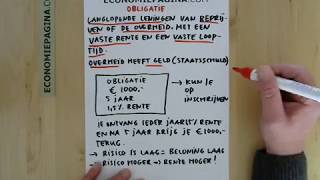 ECONOMIEPAGINA.COM
OBLIGATIE
LANGLOPENDE LENINGEN VAN BEDRIJ-
VEN OF DE OVERHEID. MET EEN
VASTE RENTE EN EEN VASTE LOOP-
TIJD.
OVERHEID HEEFT GELD (STAATSSCHULD)
OBLIGATIE
€ 1000,-
5 JAAR
1,5% RENTE
→ KUN JE
OP
INSCHRIJVEN
JE ONTVANG IEDER JAAR 1,5% RENTE
EN NA 5 JAAR KRIJG JE € 1000,-
TERUG.
→ RISICO IS LAAG = BELONING LAAG
RISICO HOGER → RENTE HOGER!